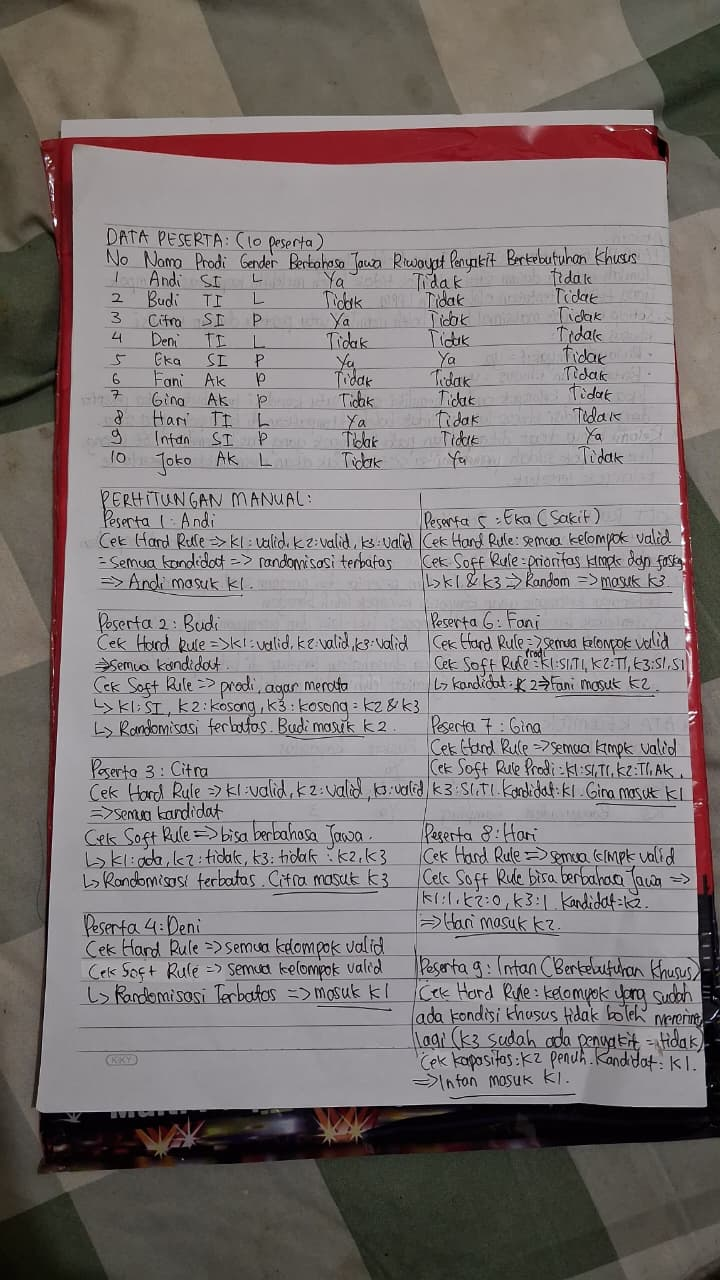 DATA PESERTA: (10 peserta)
No Nama Prodi Gender Berbahasa Jawa Riwayat Penyakit Berkebutuhan Khusus
1 Andi SI L Ya Tidak Tidak
2 Budi TI L Tidak Tidak Tidak
3 Citra SI P Ya Tidak Tidak
4 Deni TI L Tidak Tidak Tidak
5 Eka SI P Ya Ya Tidak
6 Fani Ak P Tidak Tidak Tidak
7 Gina Ak P Tidak Tidak Tidak
8 Hari TI L Ya Tidak Tidak
9 Intan SI P Tidak Tidak Ya
10 Joko Ak L Tidak Ya Tidak
PERHITUNGAN MANUAL:
Peserta 1: Andi
Cek Hard Rule => K1: valid, K2: valid, K3: valid
= Semua kandidat => randomisasi terbatas
=> Andi masuk K1.
Peserta 2: Budi
Cek Hard Rule => K1: valid, K2: valid, K3: valid
=> semua kandidat.
Cek Soft Rule => prodi, agar merata
↳ K1: SI, K2: kosong, K3: kosong = K2 & K3
↳ Randomisasi terbatas. Budi masuk K2.
Peserta 3: Citra
Cek Hard Rule => K1: valid, K2: valid, K3: valid
=> semua kandidat
Cek Soft Rule => bisa berbahasa Jawa.
↳ K1: ada, K2: tidak, K3: tidak : K2, K3
↳ Randomisasi terbatas. Citra masuk K3
Peserta 4: Deni
Cek Hard Rule => semua kelompok valid
Cek Soft Rule => semua kelompok valid
↳ Randomisasi Terbatas => masuk K1
Peserta 5: Eka (Sakit)
Cek Hard Rule: semua kelompok valid
Cek Soft Rule: prioritas klmpk dgn faskes
↳ K1 & K3 => Random => masuk K3
Peserta 6: Fani
Cek Hard Rule => semua kelompok valid
Cek Soft Rule Prodi: K1: SI,TI, K2: TI, K3: SI, SI
↳ kandidat: K2 => Fani masuk K2.
Peserta 7: Gina
Cek Hard Rule => semua klmpk valid
Cek Soft Rule Prodi: K1: SI,TI, K2: TI, AK,
K3: SI, TI. Kandidat: K1. Gina masuk K1
Peserta 8: Hari
Cek Hard Rule => semua klmpk valid
Cek Soft Rule bisa berbahasa Jawa =>
K1: 1, K2: 0, K3: 1. Kandidat: K2.
=> Hari masuk K2.
Peserta 9: Intan (Berkebutuhan Khusus)
Cek Hard Rule: kelompok yang sudah
ada kondisi khusus tidak boleh menerima
lagi (K3 sudah ada penyakit = tidak)
Cek kapasitas: K2 penuh. Kandidat: K1.
=> Intan masuk K1.
KIKY